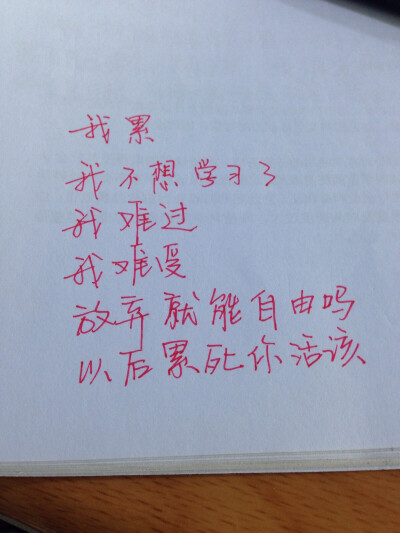 我累
我不想学习了
我难过
我难受
放弃就能自由吗
以后累死你活该